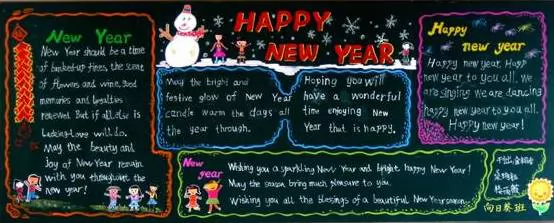 New Year
New Year should be a time
of banked-up fires, the scent
of flowers and wine, good
memories and loyalties
renewed. But if all else is
lacking love will do.
May the beauty and
joy of New Year remain
with you throughout the
new year!
HAPPY
NEW YEAR
May the bright and
festive glow of New Year
candle warm the days all
the year through.
Hoping you will
have a wonderful
time enjoying New
Year that is happy.
Happy
new year
Happy new year, Happy
new year to you all. We
are singing we are dancing
happy new year to you all.
Happy new year!
New
year
Wishing you a sparkling New Year and bright happy New Year!
May the season bring much pleasure to you.
Wishing you all the blessings of a beautiful New Year season.
向日葵班